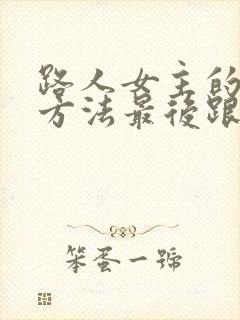 路人女主的
方法最後跟
笨蛋一號